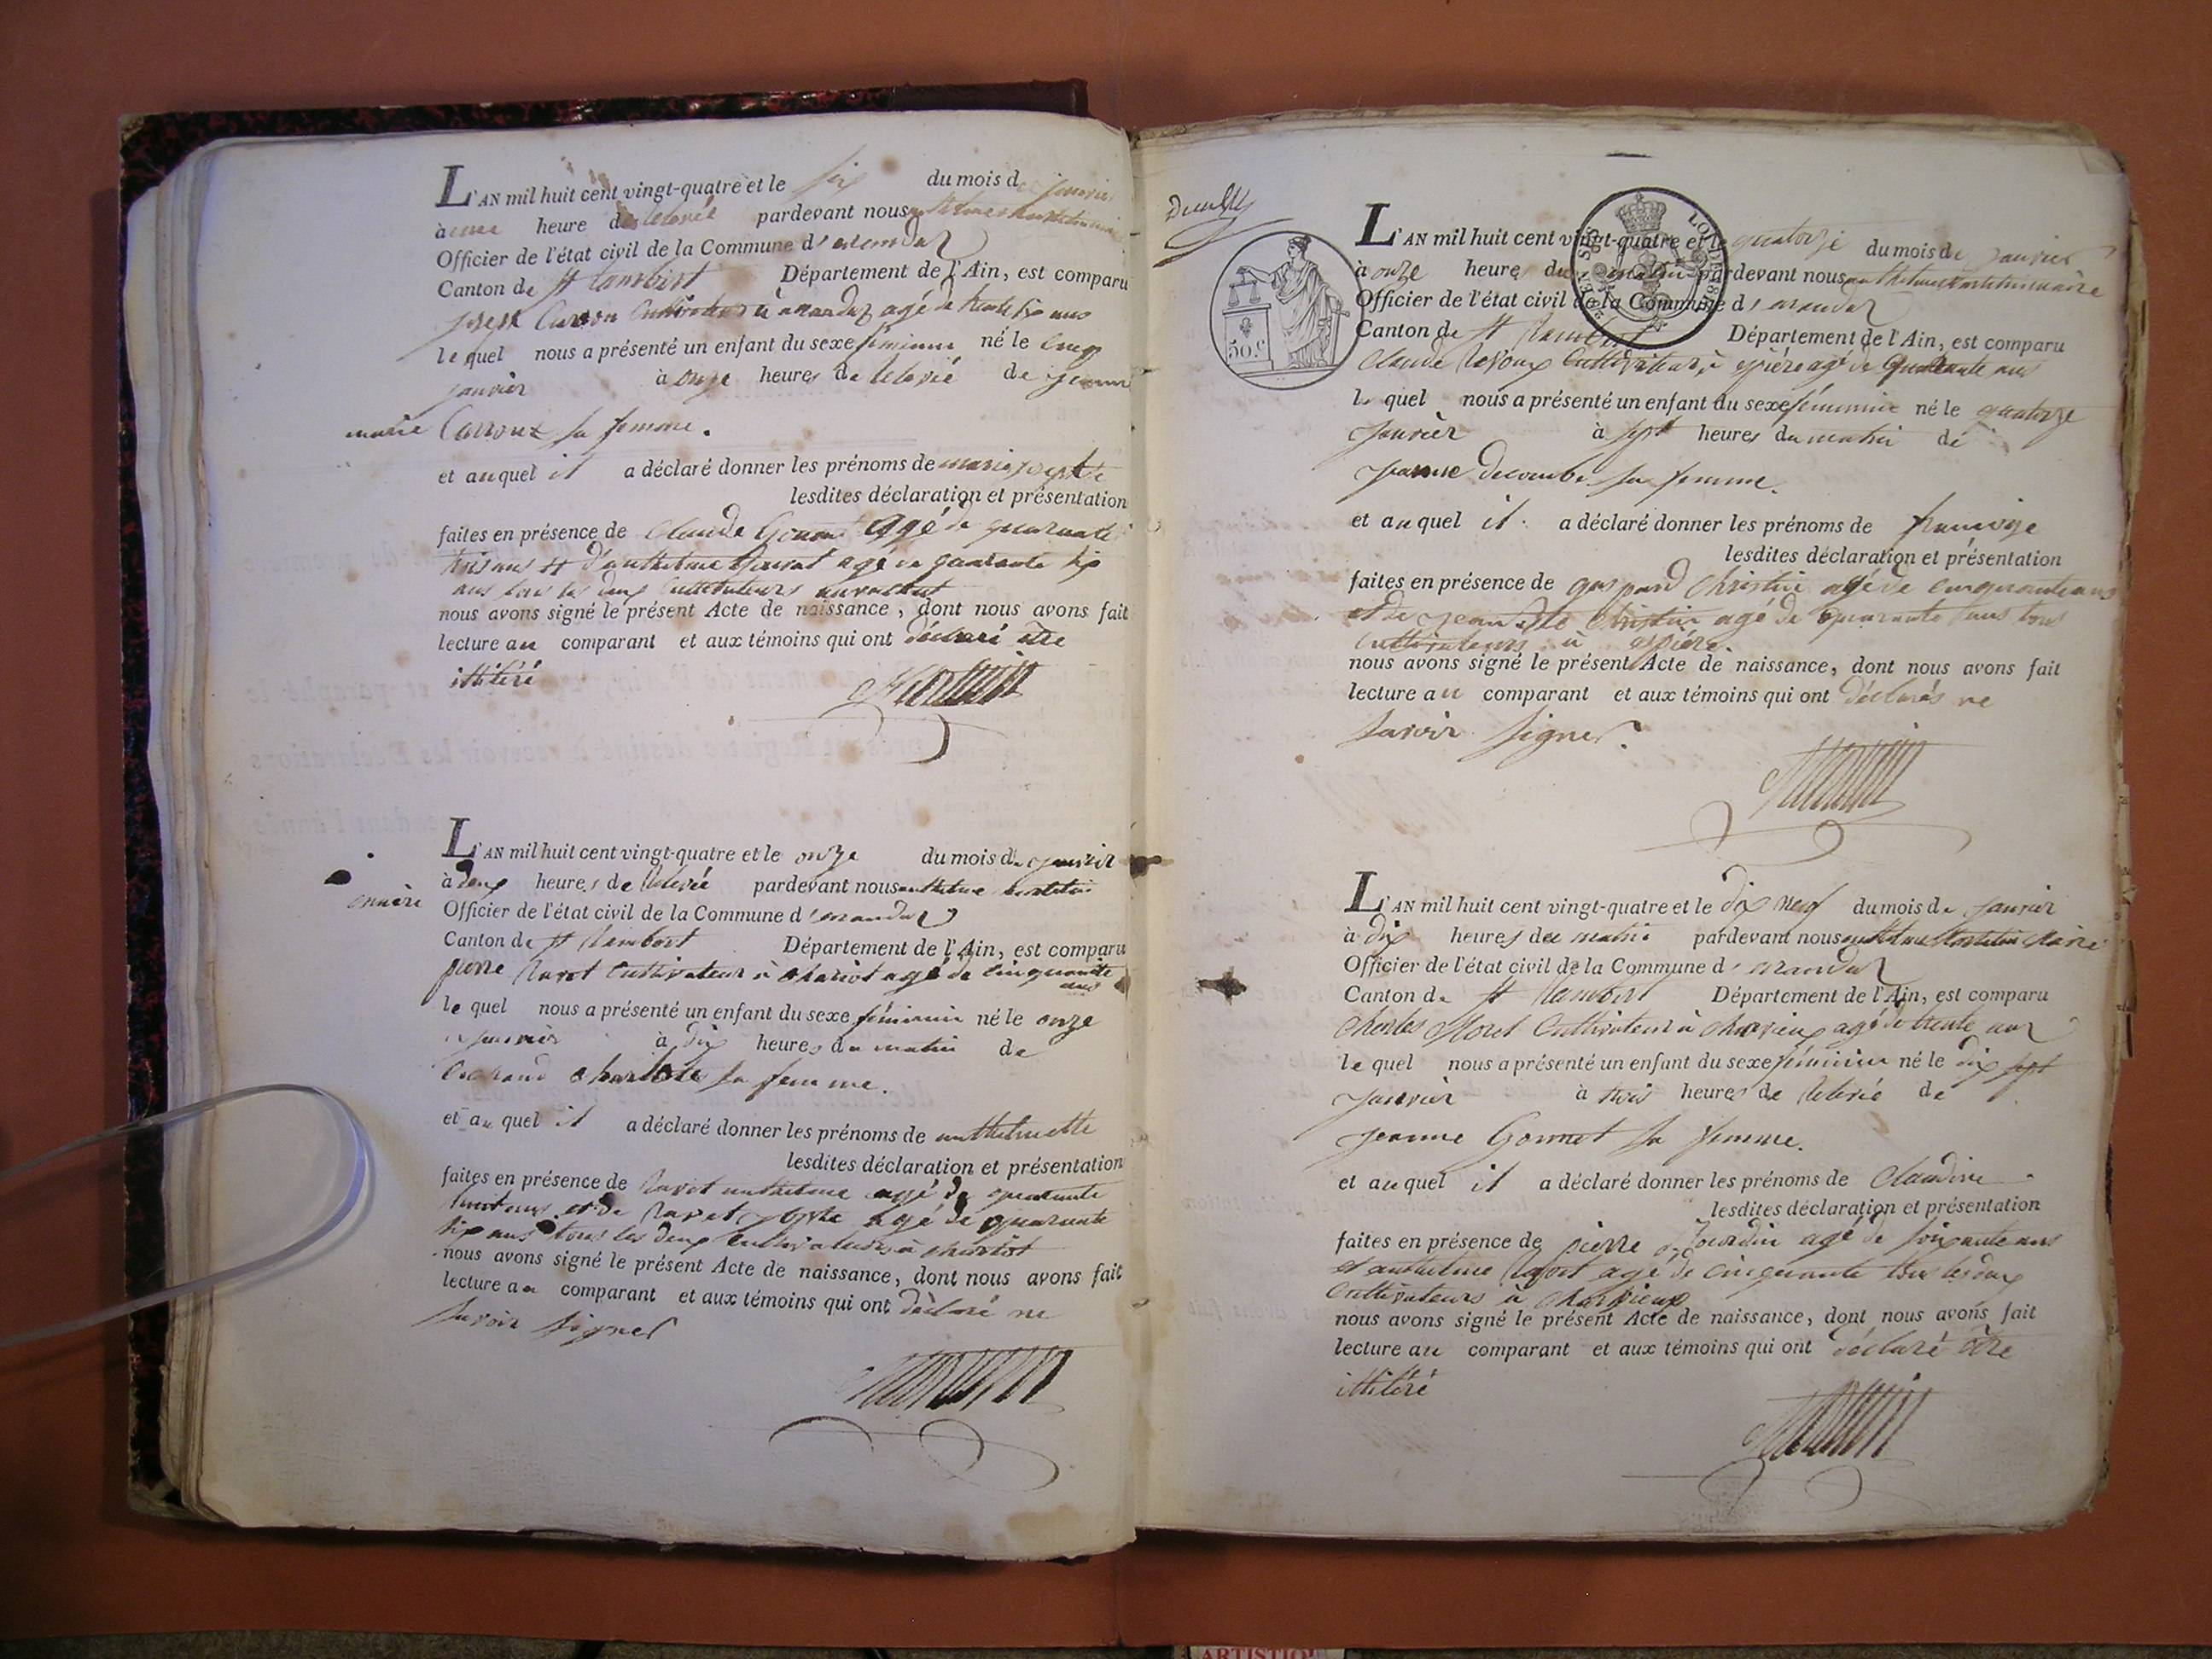 L'AN mil huit cent vingt-quatre et le six du mois de janvier
à une heure de relevée pardevant nous
Officier de l'état civil de la Commune d'arandas
Canton de St Rambert Département de l'Ain, est comparu
joseph cultivateur à arandas agé de trente six ans
lequel nous a présenté un enfant du sexe féminin né le cinq
janvier à onze heures de relevée de jeanne
marie sa femme.
et auquel il a déclaré donner les prénoms de marie josephte
lesdites déclaration et présentation
faites en présence de claude agé de quarante
trois ans et d'anthelme agé de quarante six
ans tous les deux cultivateurs
nous avons signé le présent Acte de naissance, dont nous avons fait
lecture au comparant et aux témoins qui ont déclaré être
illitéré
L'AN mil huit cent vingt-quatre et le onze du mois de janvier
à deux heures de relevée pardevant nous anthelme
maire Officier de l'état civil de la Commune d'arandas
Canton de St Rambert Département de l'Ain, est comparu
pierre Ravet cultivateur à chariot agé de cinquante
ans
lequel nous a présenté un enfant du sexe féminin né le onze
janvier à dix heures du matin de
charlote sa femme.
et auquel il a déclaré donner les prénoms de anthelmette
lesdites déclaration et présentation
faites en présence de Ravet anthelme agé de quarante
huit ans et de Ravet agé de quarante
six ans tous les deux cultivateurs à chariot
nous avons signé le présent Acte de naissance, dont nous avons fait
lecture au comparant et aux témoins qui ont déclaré ne
savoir signer
50.c
L'AN mil huit cent vingt-quatre et le quatorze du mois de janvier
à onze heures du matin pardevant nous anthelme maire
Officier de l'état civil de la Commune d'arandas
Canton de St Rambert Département de l'Ain, est comparu
claude cultivateur à agé de quarante ans
lequel nous a présenté un enfant du sexe féminin né le quatorze
janvier à sept heures du matin de
jeanne decombe sa femme.
et auquel il a déclaré donner les prénoms de françoise
lesdites déclaration et présentation
faites en présence de gaspard christin agé de cinquante ans
et de jean christin agé de quarante ans tous
cultivateurs à
nous avons signé le présent Acte de naissance, dont nous avons fait
lecture au comparant et aux témoins qui ont déclarés ne
savoir signer.
L'AN mil huit cent vingt-quatre et le dix neuf du mois de janvier
à dix heures du matin pardevant nous anthelme maire
Officier de l'état civil de la Commune d'arandas
Canton de St Rambert Département de l'Ain, est comparu
charles cultivateur à agé de trente ans
lequel nous a présenté un enfant du sexe féminin né le dix sept
janvier à trois heures de relevée de
jeanne Gonnet sa femme.
et auquel il a déclaré donner les prénoms de claudine
lesdites déclaration et présentation
faites en présence de pierre agé de soixante ans
et anthelme agé de cinquante tous les deux
cultivateurs à
nous avons signé le présent Acte de naissance, dont nous avons fait
lecture au comparant et aux témoins qui ont déclaré être
illitéré